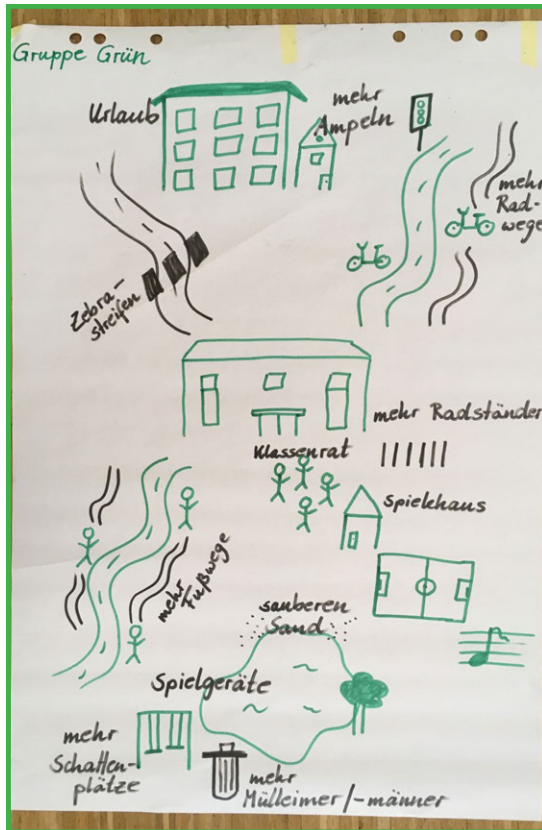 Gruppe Grün
Urlaub
mehr
Ampeln
mehr
Rad-
wege
Zebra-
streifen
mehr Radständer
Klassenrat
Spielehaus
mehr Fußwege
sauberen
Sand
Spielgeräte
mehr
Schatten-
plätze
mehr
Mülleimer/-männer